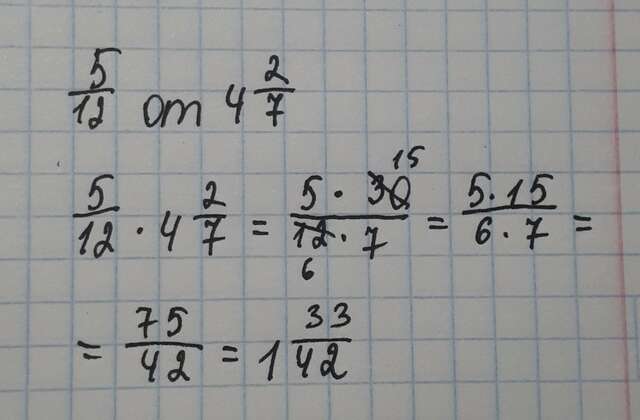 5/12 от 4 2/7
5/12 · 4 2/7 = 5 · 30 15 / 12 6 · 7 = 5·15 / 6·7 =
= 75/42 = 1 33/42